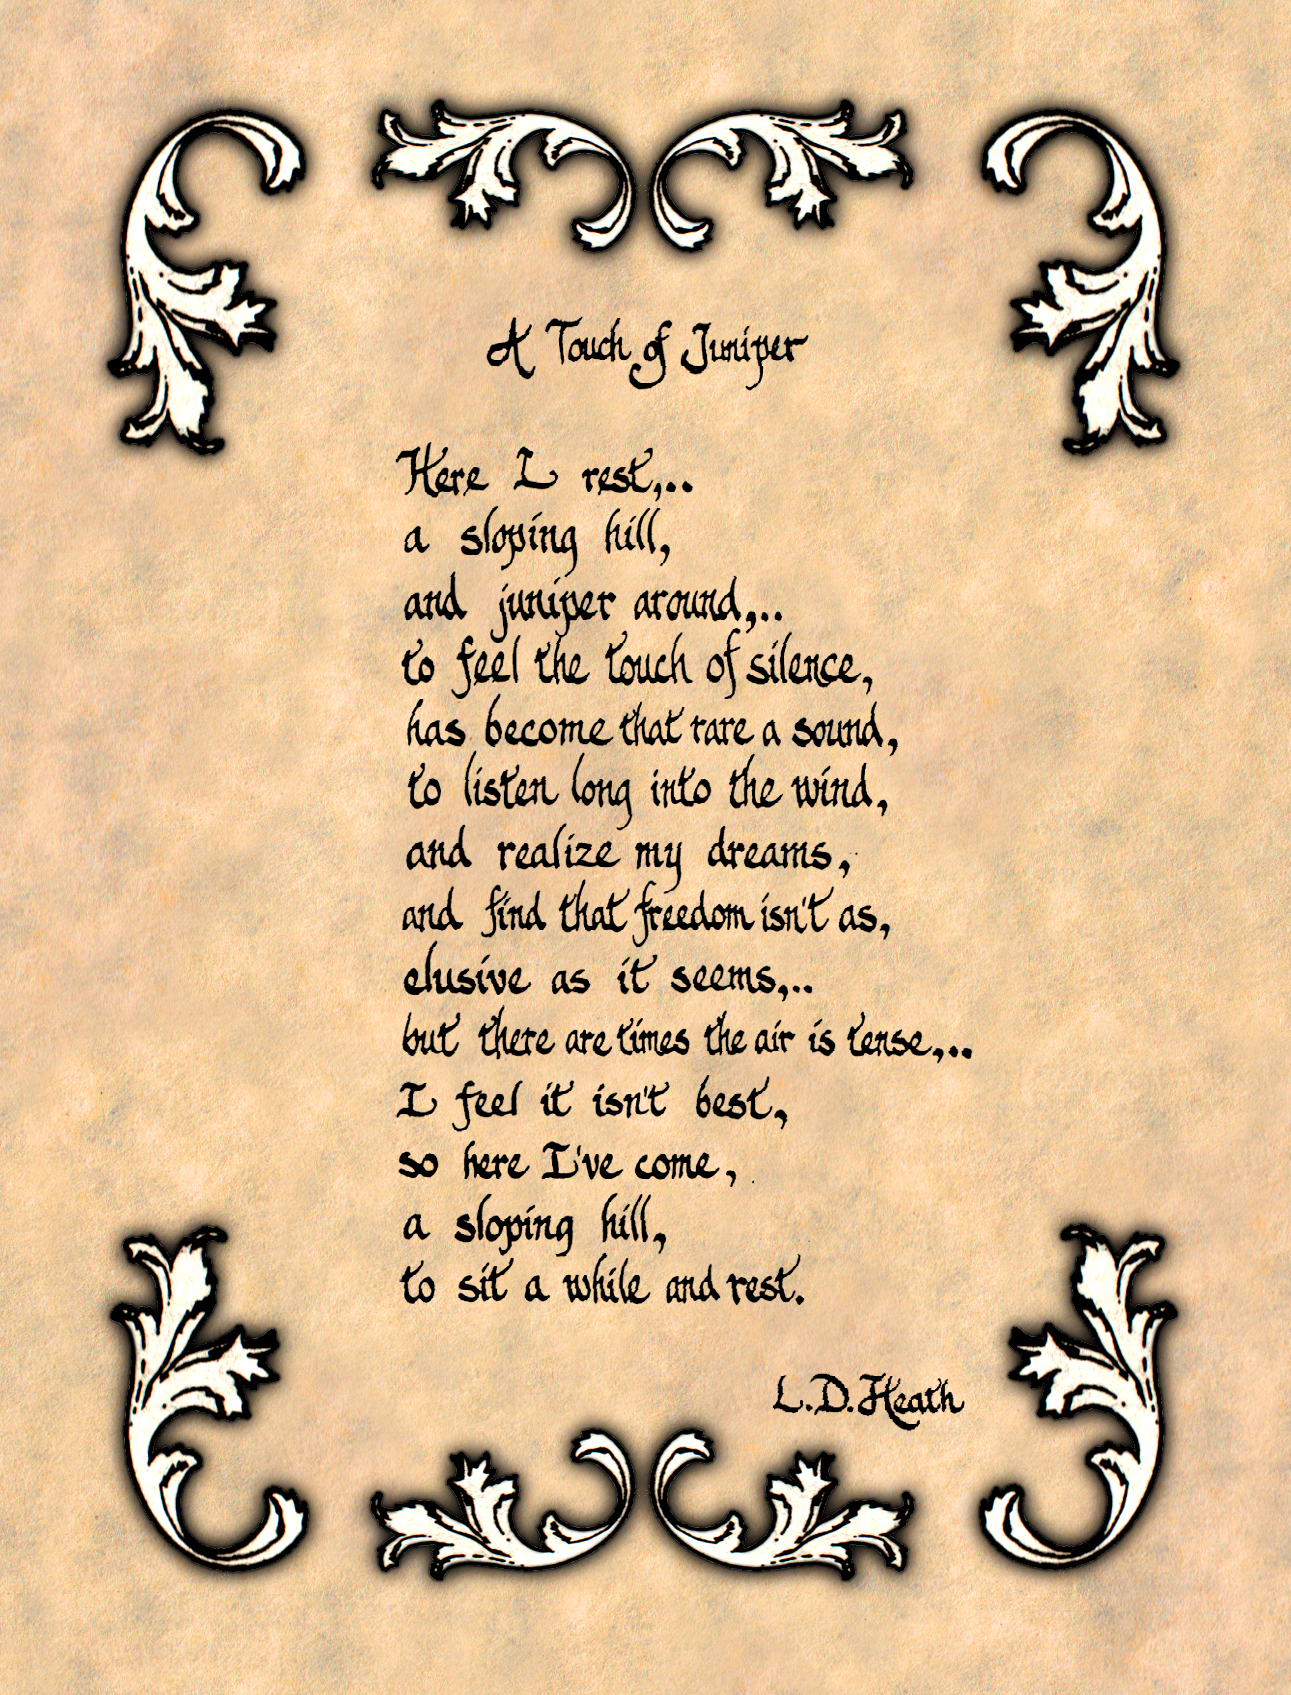 A Touch of Juniper
Here I rest,..
a sloping hill,
and juniper around,..
to feel the touch of silence,
has become that rare a sound,
to listen long into the wind,
and realize my dreams,
and find that freedom isn't as,
elusive as it seems,..
but there are times the air is tense,..
I feel it isn't best,
so here I've come,
a sloping hill,
to sit a while and rest.
L.D.Heath